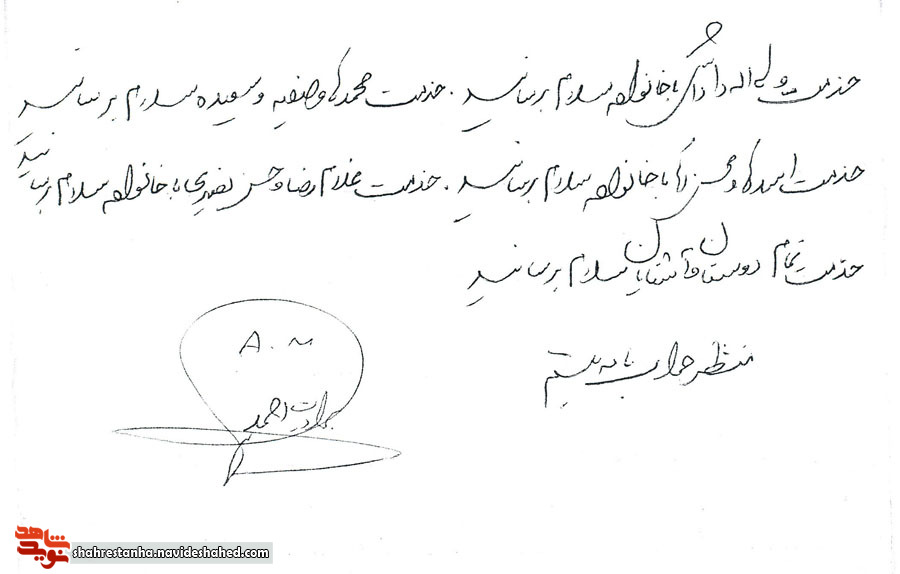 خدمت ولی اله داداشی با خانواده سلام برسانید . خدمت محمد و صفیه و سعیده سلام برسانید
خدمت اسد و محسن با خانواده سلام برسانید . خدمت غلامرضا و حسن نصیری با خانواده سلام برسانید
خدمت تمام دوستان و آشنایان سلام برسانید
منتظر جواب نامه هستم
A.M
برادرت احمد
شاهد
نوید
shahrestanha.navideshahed.com